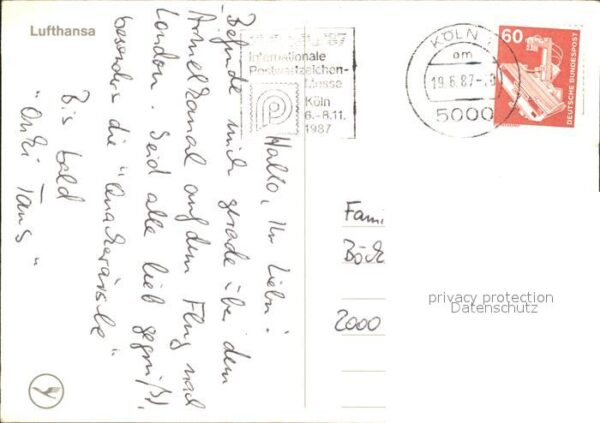 Lufthansa
Hallo, Ihr Lieben!
Befinde mich gerade über dem
Ärmelkanal auf dem Flug nach
London. Seid alle lieb gegrüßt,
besonders die
Bis bald
"Onkel
Internationale
Postwertzeichen-
Messe
Köln
6.-8.11.
1987
KÖLN
am
19.6.87
5000
60
DEUTSCHE BUNDESPOST
Fami
Böck
2000
privacy protection
Datenschutz